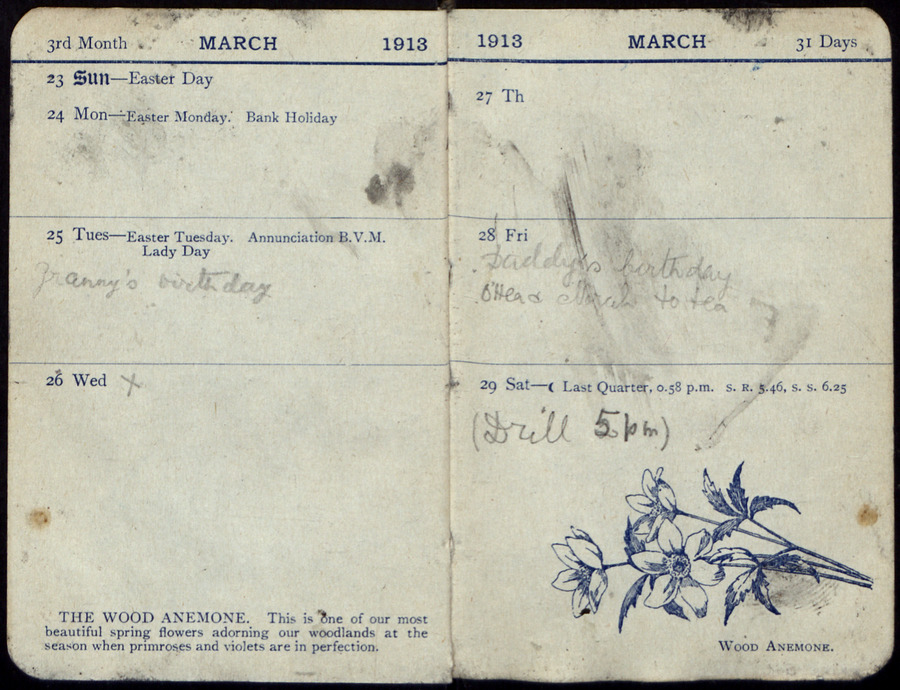 3rd Month MARCH 1913
23 Sun—Easter Day
24 Mon—Easter Monday. Bank Holiday
25 Tues—Easter Tuesday. Annunciation B.V.M.
Lady Day
Granny's birthday
26 Wed X
THE WOOD ANEMONE. This is one of our most
beautiful spring flowers adorning our woodlands at the
season when primroses and violets are in perfection.
1913 MARCH 31 Days
27 Th
28 Fri
Daddy's birthday
O'Hea & to tea
29 Sat—☾ Last Quarter, 0.58 p.m. S. R. 5.46, S. S. 6.25
(Drill 5 pm)
WOOD ANEMONE.